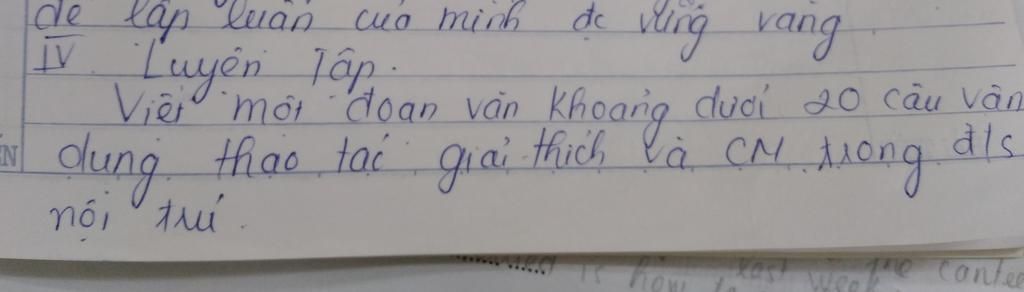 để lập luận của mình đc vững vàng.
IV. Luyện Tập.
Viết một đoạn văn khoảng dưới 20 câu vận
dụng thao tác giải thích và CM trong đ/s
nội trú.
is how last week the cantee